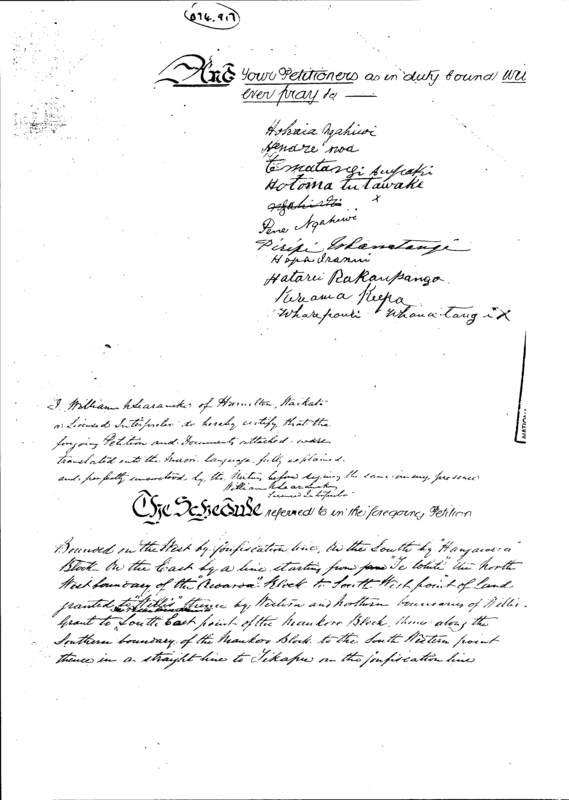 074.917
And Your Petitioners as in duty bound will
ever pray &c
Hohaia Ngahiwi
Henare
Te matangi
Hotoma tutawake
x
Pene Ngahiwi
Piripi Whanatangi
Hopa
Hatarei Rakaupango
Kereama Keepa
Wharepouri Whanatangi X
I William Searancke of Hamilton, Waikato
a Licensed Interpreter do hereby certify that the
forgoing Petition and Documents attached were
translated into the Maori language fully explained
and perfectly understood by the Natives before signing the same in my presence
William Searancke
Licensed Interpreter
The Schedule referred to in the foregoing Petition
Bounded on the West by Confiscation line, on the South by "Hangawera"
Block On the East by a line starting from "Te" the North
West boundary of the "Awaroa" Block to South West point of land
granted to "Willis" thence by Western and Northern boundaries of Willis
Grant to South East point of the Mankoro Block, thence along the
Southern boundary of the Mankoro Block to the South Western point
thence in a straight line to Tikapu on the Confiscation line
NATIONAL